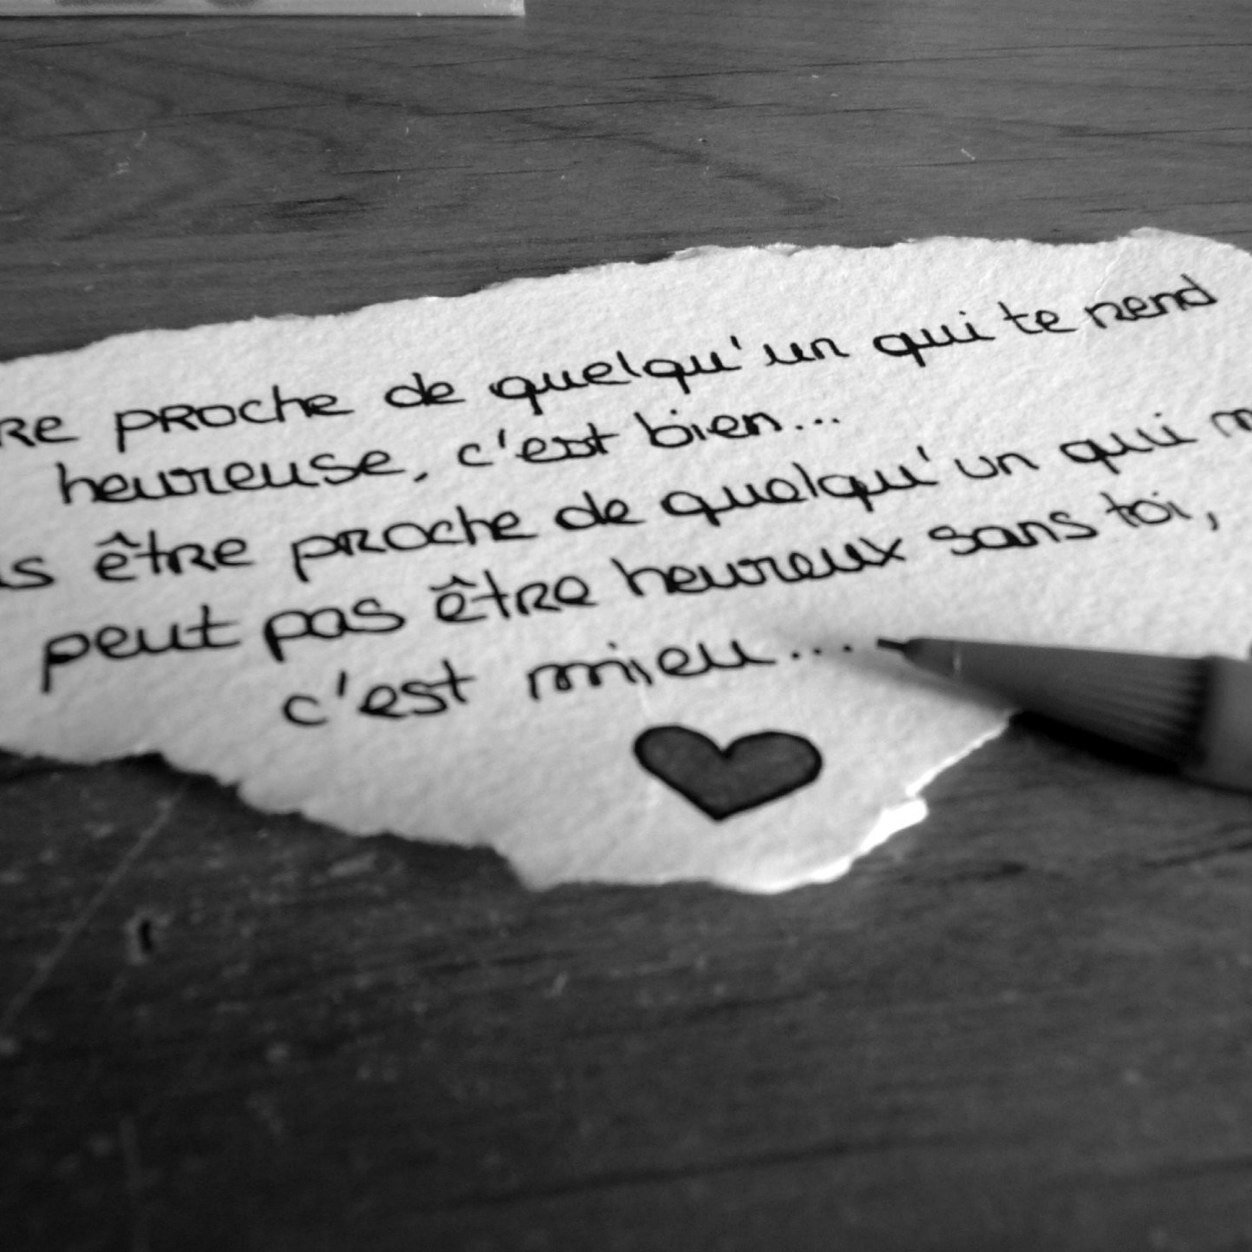 RE PROCHE de quelqu'un qui te rend
heureuse, c'est bien...
is être proche de quelqu'un qui
peut pas être heureux sans toi,
c'est mieu....